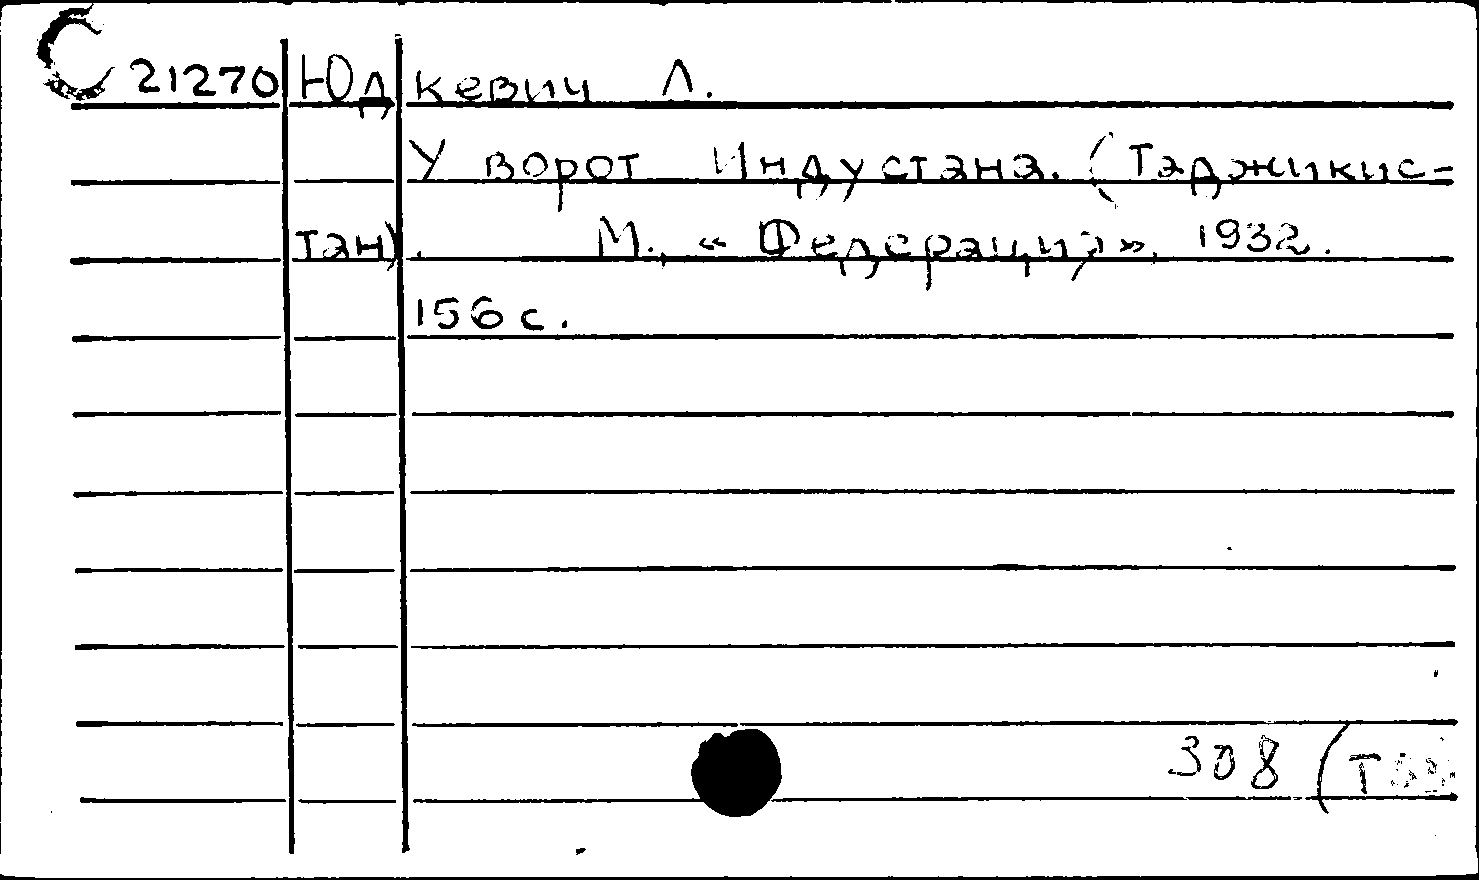 С 21270 Юдкевич Л.
У ворот Индустана. (Таджикис-
тан). М., «Федерация», 1932.
156 с.
308 (Т